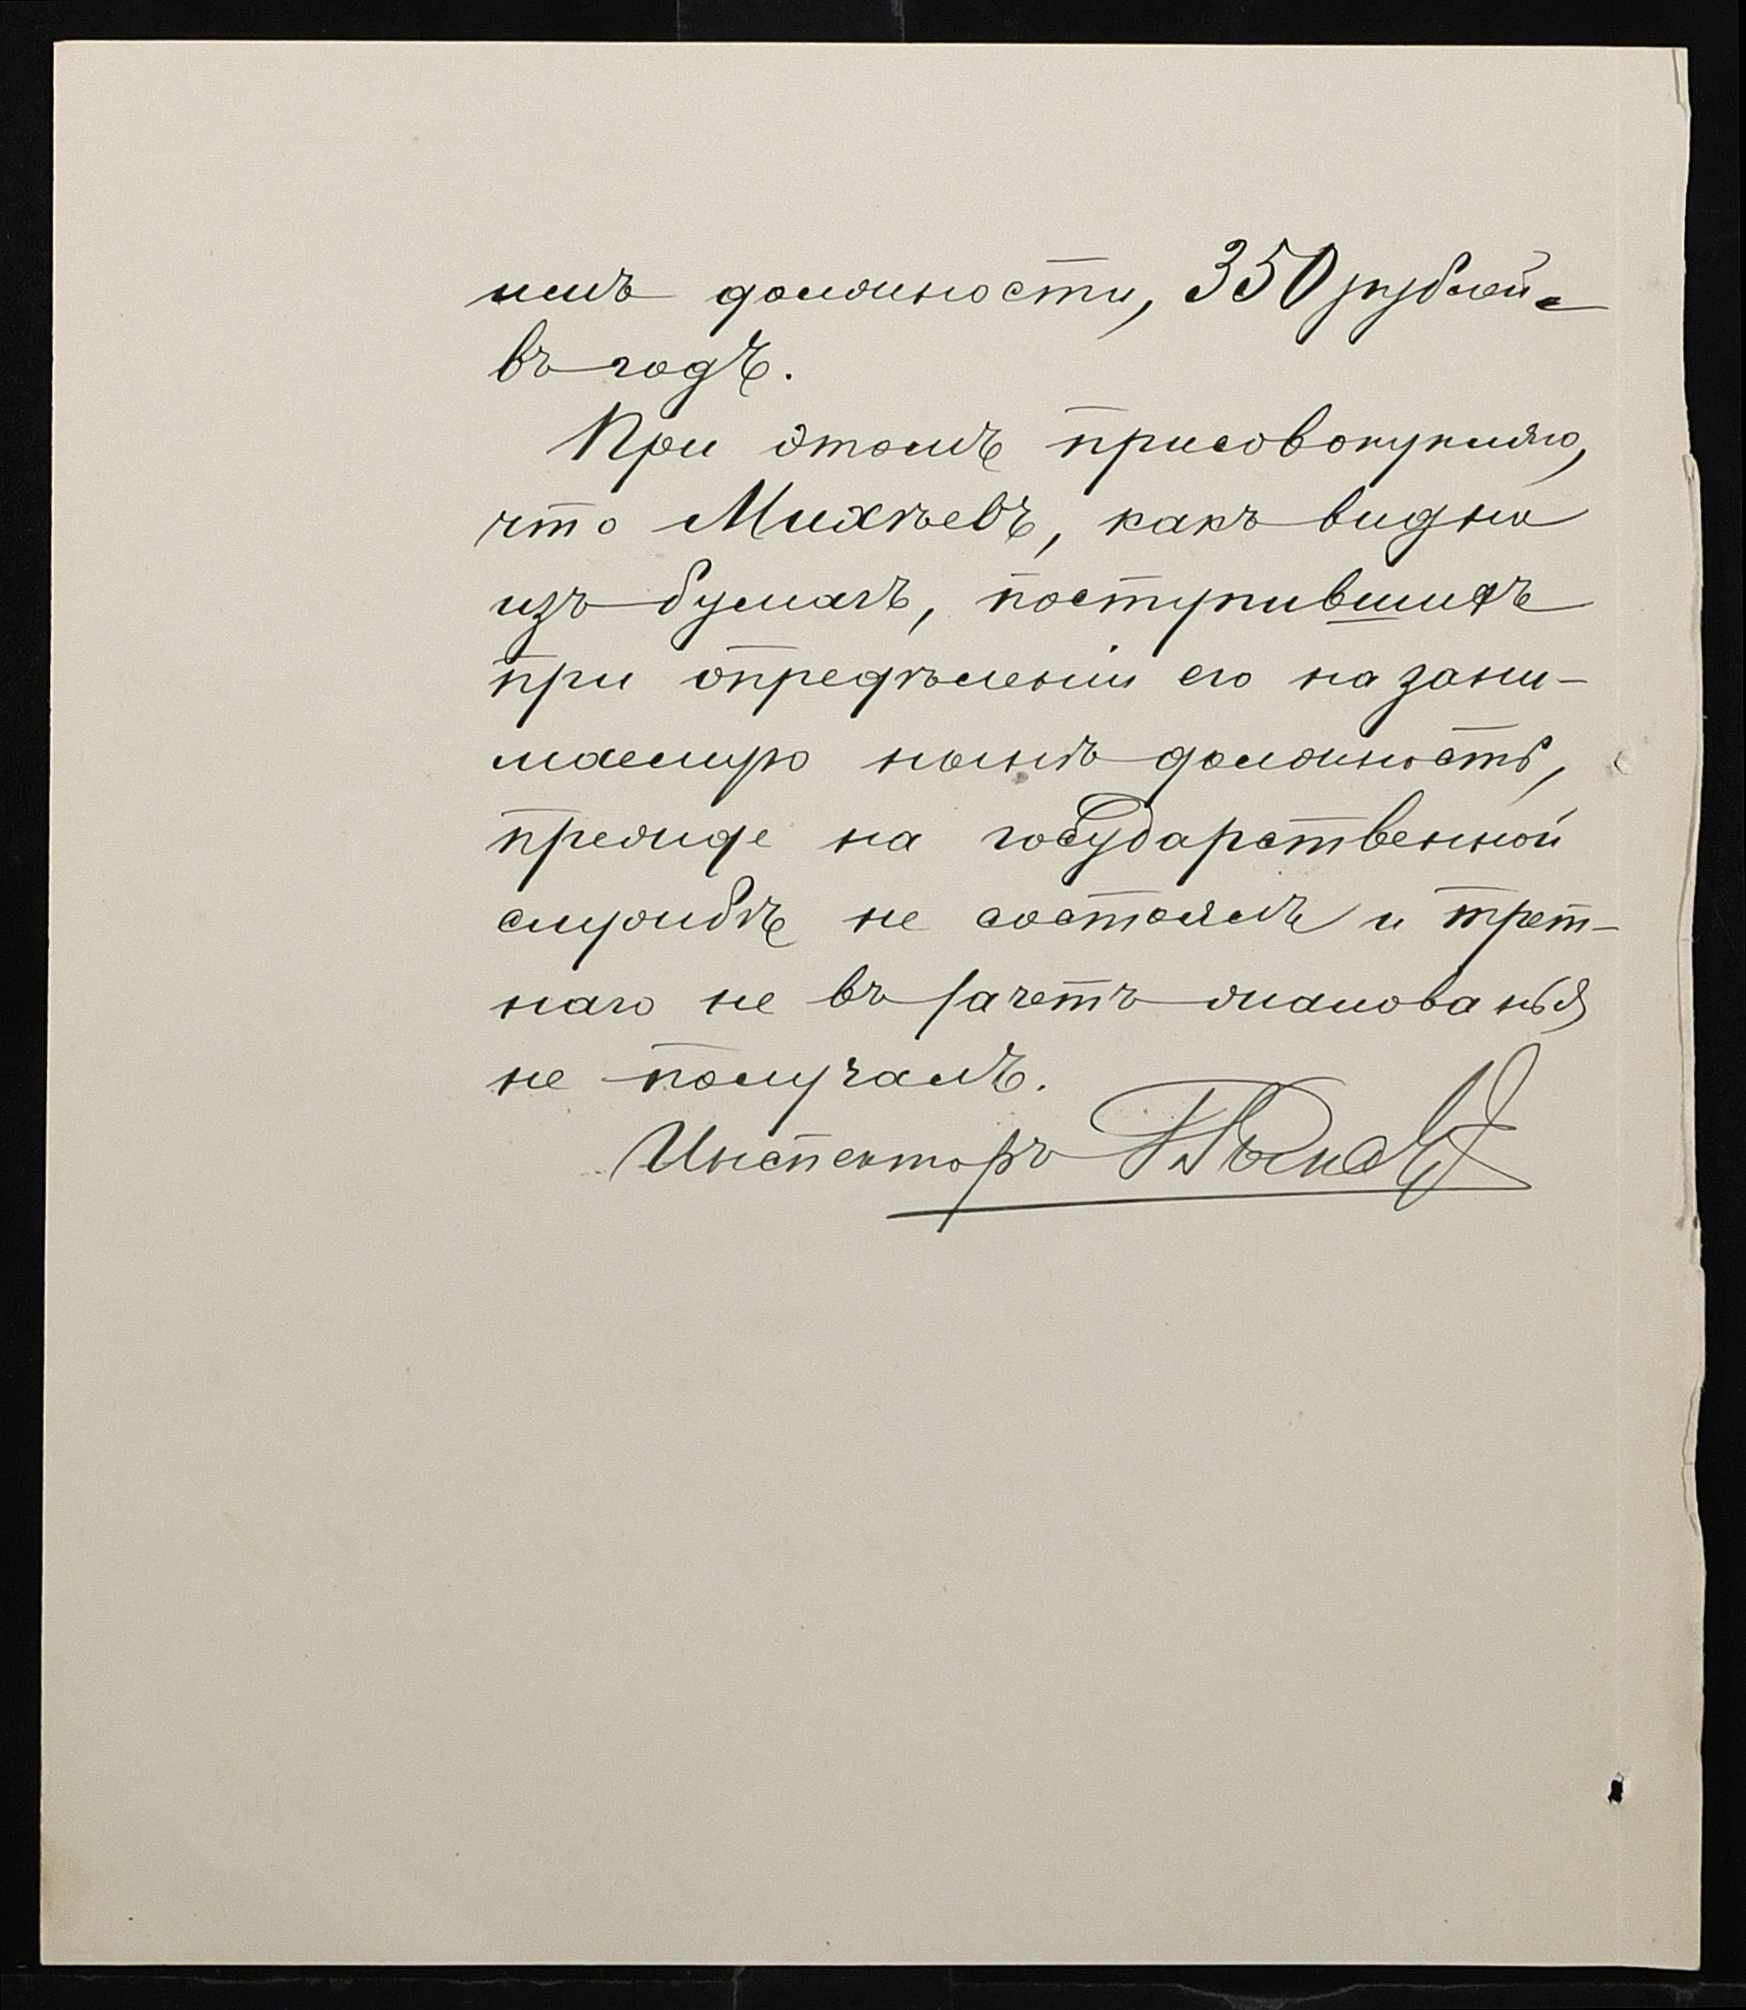 имъ должности, 350 рублей
въ годъ.
При этомъ присовокупляю,
что Михѣевъ, какъ видно
изъ бумагъ, поступившихъ
при опредѣленіи его на зани-
маемую нынѣ должность,
прежде на государственной
службѣ не состоялъ и трет-
наго не въ зачетъ жалованья
не получалъ.
Инспекторъ